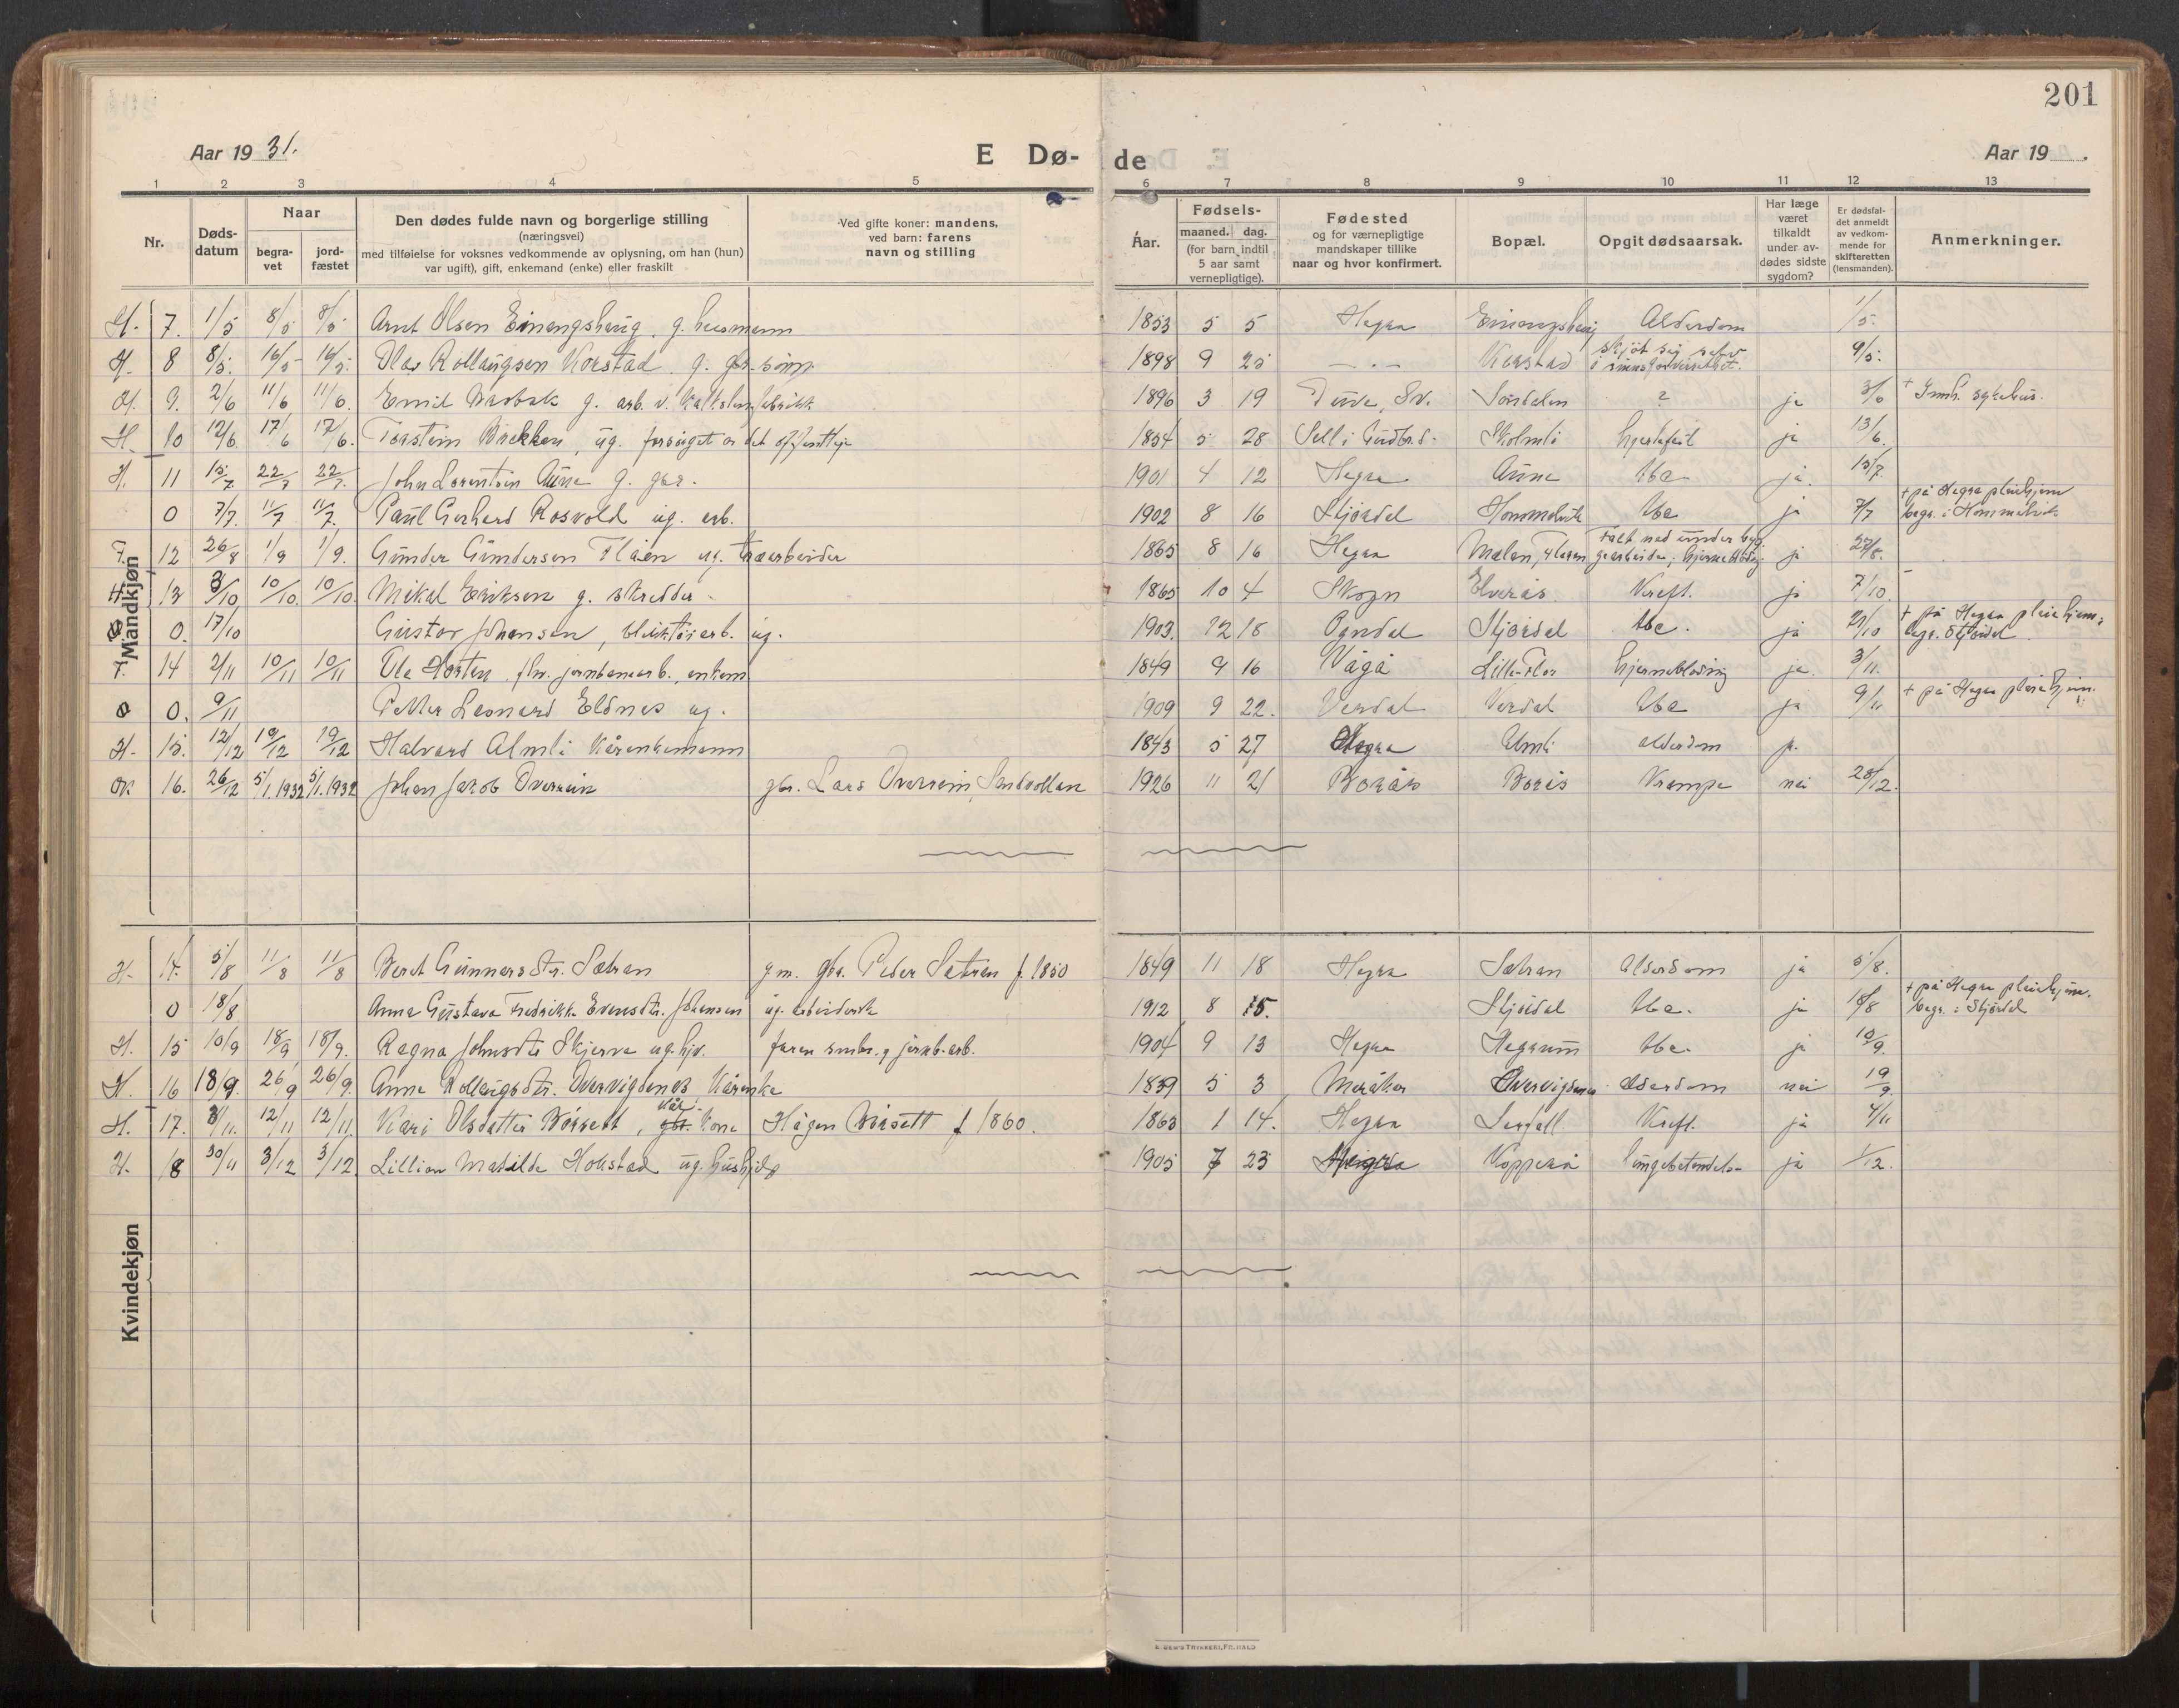 201
Aar 19 31.
E Dø- de
Aar 19 .
1 2 3 4 5 6 7 8 9 10 11 12 13
Nr.
Døds-
datum
Naar
begra-
vet
jord-
fæstet
Den dødes fulde navn og borgerlige stilling
(næringsvei)
med tilføielse for voksnes vedkommende av oplysning, om han (hun)
var ugift), gift, enkemand (enke) eller fraskilt
Ved gifte koner: mandens,
ved barn: farens
navn og stilling
Aar.
Fødsels-
maaned. dag.
(for barn indtil
5 aar samt
vernepligtige).
Fødested
og for værnepligtige
mandskaper tillike
naar og hvor konfirmert.
Bopæl.
Opgit dødsaarsak.
Har læge
været
tilkaldt
under av-
dødes sidste
sygdom?
Er dødsfal-
det anmeldt
av vedkom-
mende for
skifteretten
(lensmanden).
Anmerkninger.
Mandkjøn
H. 7. 1/5 8/5 8/5 Arnt Olsen Einangshaug, g. husmann 1853 5 5 Hegra Einangshaug Alderdom 1/5.
H. 8 8/5. 16/5 16/5. Olav Kollaugsen Korstad g. gbr. sønn. 1898 9 25 - " - Korstad skjøt sig selv i sinnsforvirrethet. 9/5.
H. 9. 2/6 11/6 11/6. Emil g. arb. v. 1896 3 19 Sv. Sørdalen ? ja 3/6 + Innh. sykehus.
H. 10 12/6. 17/6 17/6. Torstein Brekken, ug. forsørget av det offentlige 1854 5 28 Sell i Gudbr.d. Skolmli hjertefeil ja 13/6.
H. 11 15/7 22/7 22/7. John Lorentsen Aune g. gbr. 1901 4 12 Hegra Aune tbc. ja. 15/7.
0 7/7. 11/7 11/7. Paul Gerhard Rosvold ug. arb. 1902 8 16 Stjørdal Hommelvik tbc ja 7/7 + på Hegra pleiehjem begr. i Hommelvik
F. 12 26/8 1/9 1/9. Gunder Gundersen Flåen ug. træarbeider 1865 8 16 Hegra Mælen, Floren Falt ned under byggearbeide; hjerneblødning ja 27/8.
H 13 3/10 10/10. 10/10. Mikal Eriksen g. skredder. 1865 10 4 Skogn Elverås. Kreft. ja 7/10.
0. 17/10 Gustav Johansen, blikktøiarb. ug. 1903. 12 18 Ogndal Stjørdal tbc. ja /10 + på Hegra pleiehjem; begr. Stjørdal.
F. 14 2/11 10/11 10/11 Ole Horten, fhv. jernbanearb., enkem. 1849 9 16 Vågå Lille-Flor hjerneblødning ja. 3/11.
0 0. 9/11 Petter Leonard Eldnes ug. 1909 9 22. Verdal Verdal tbc ja 9/11 + på Hegra pleiehjem.
H. 15. 12/12 19/12 19/12 Halvard Almli kårenkemann 1843 5 27 Hegra Almli alderdom ja.
16. 26/12 5/1.1932 5/1.1932 Johan Jakob Overrein gbr. Lars Overrein, Sandvollan 1926 11 21 Borås Borås Krampe nei 28/12.
H. 14. 5/8 11/8 11/8 Beret Gunnarsdtr. Sætran g.m. gbr. Peder Sætran f. 1850 1849 11 18 Hegra Sætran Alderdom ja 5/8.
0 18/8 Anna Gustava Fredrikke Evensdtr. Johansen ug. arbeiderske 1912 8 15. Stjørdal tbc. ja 18/8 + på Hegra pleiehjem. begr. i Stjørdal
H. 15 10/9 18/9 18/9. Ragna Johnsdtr Skjerve ug. hjv. faren småbr. og jernb.arb. 1904 9 13 Hegra tbc. ja 10/9.
H. 16 18/9. 26/9 26/9. Anne Kollaugsdtr. Overvigdenes Kårenke 1839 5 3 Meråker Overvigdenes Alderdom nei 19/9.
H. 17. 3/11. 12/11 12/11. Kari Olsdatter Börsett, kår- gbr. kone Hågen Börsett f 1860. 1863 1 14. Hegra Levfall Kreft. ja 4/11
H. 18 30/11 3/12 3/12. Lillian Matilde Hokstad ug. hushjelp 1905 7 23 Kopperå lungebetendelse ja 1/12.
Kvindekjøn
TRYKKERI, FR. HALD